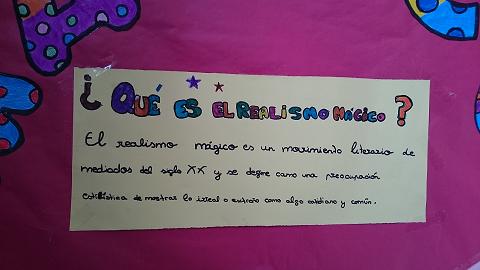 ¿QUÉ ES EL REALISMO MÁGICO?
El realismo mágico es un movimiento literario de
mediados del siglo XX y se define como una preocupación
estilística de mostrar lo irreal o extraño como algo cotidiano y común.